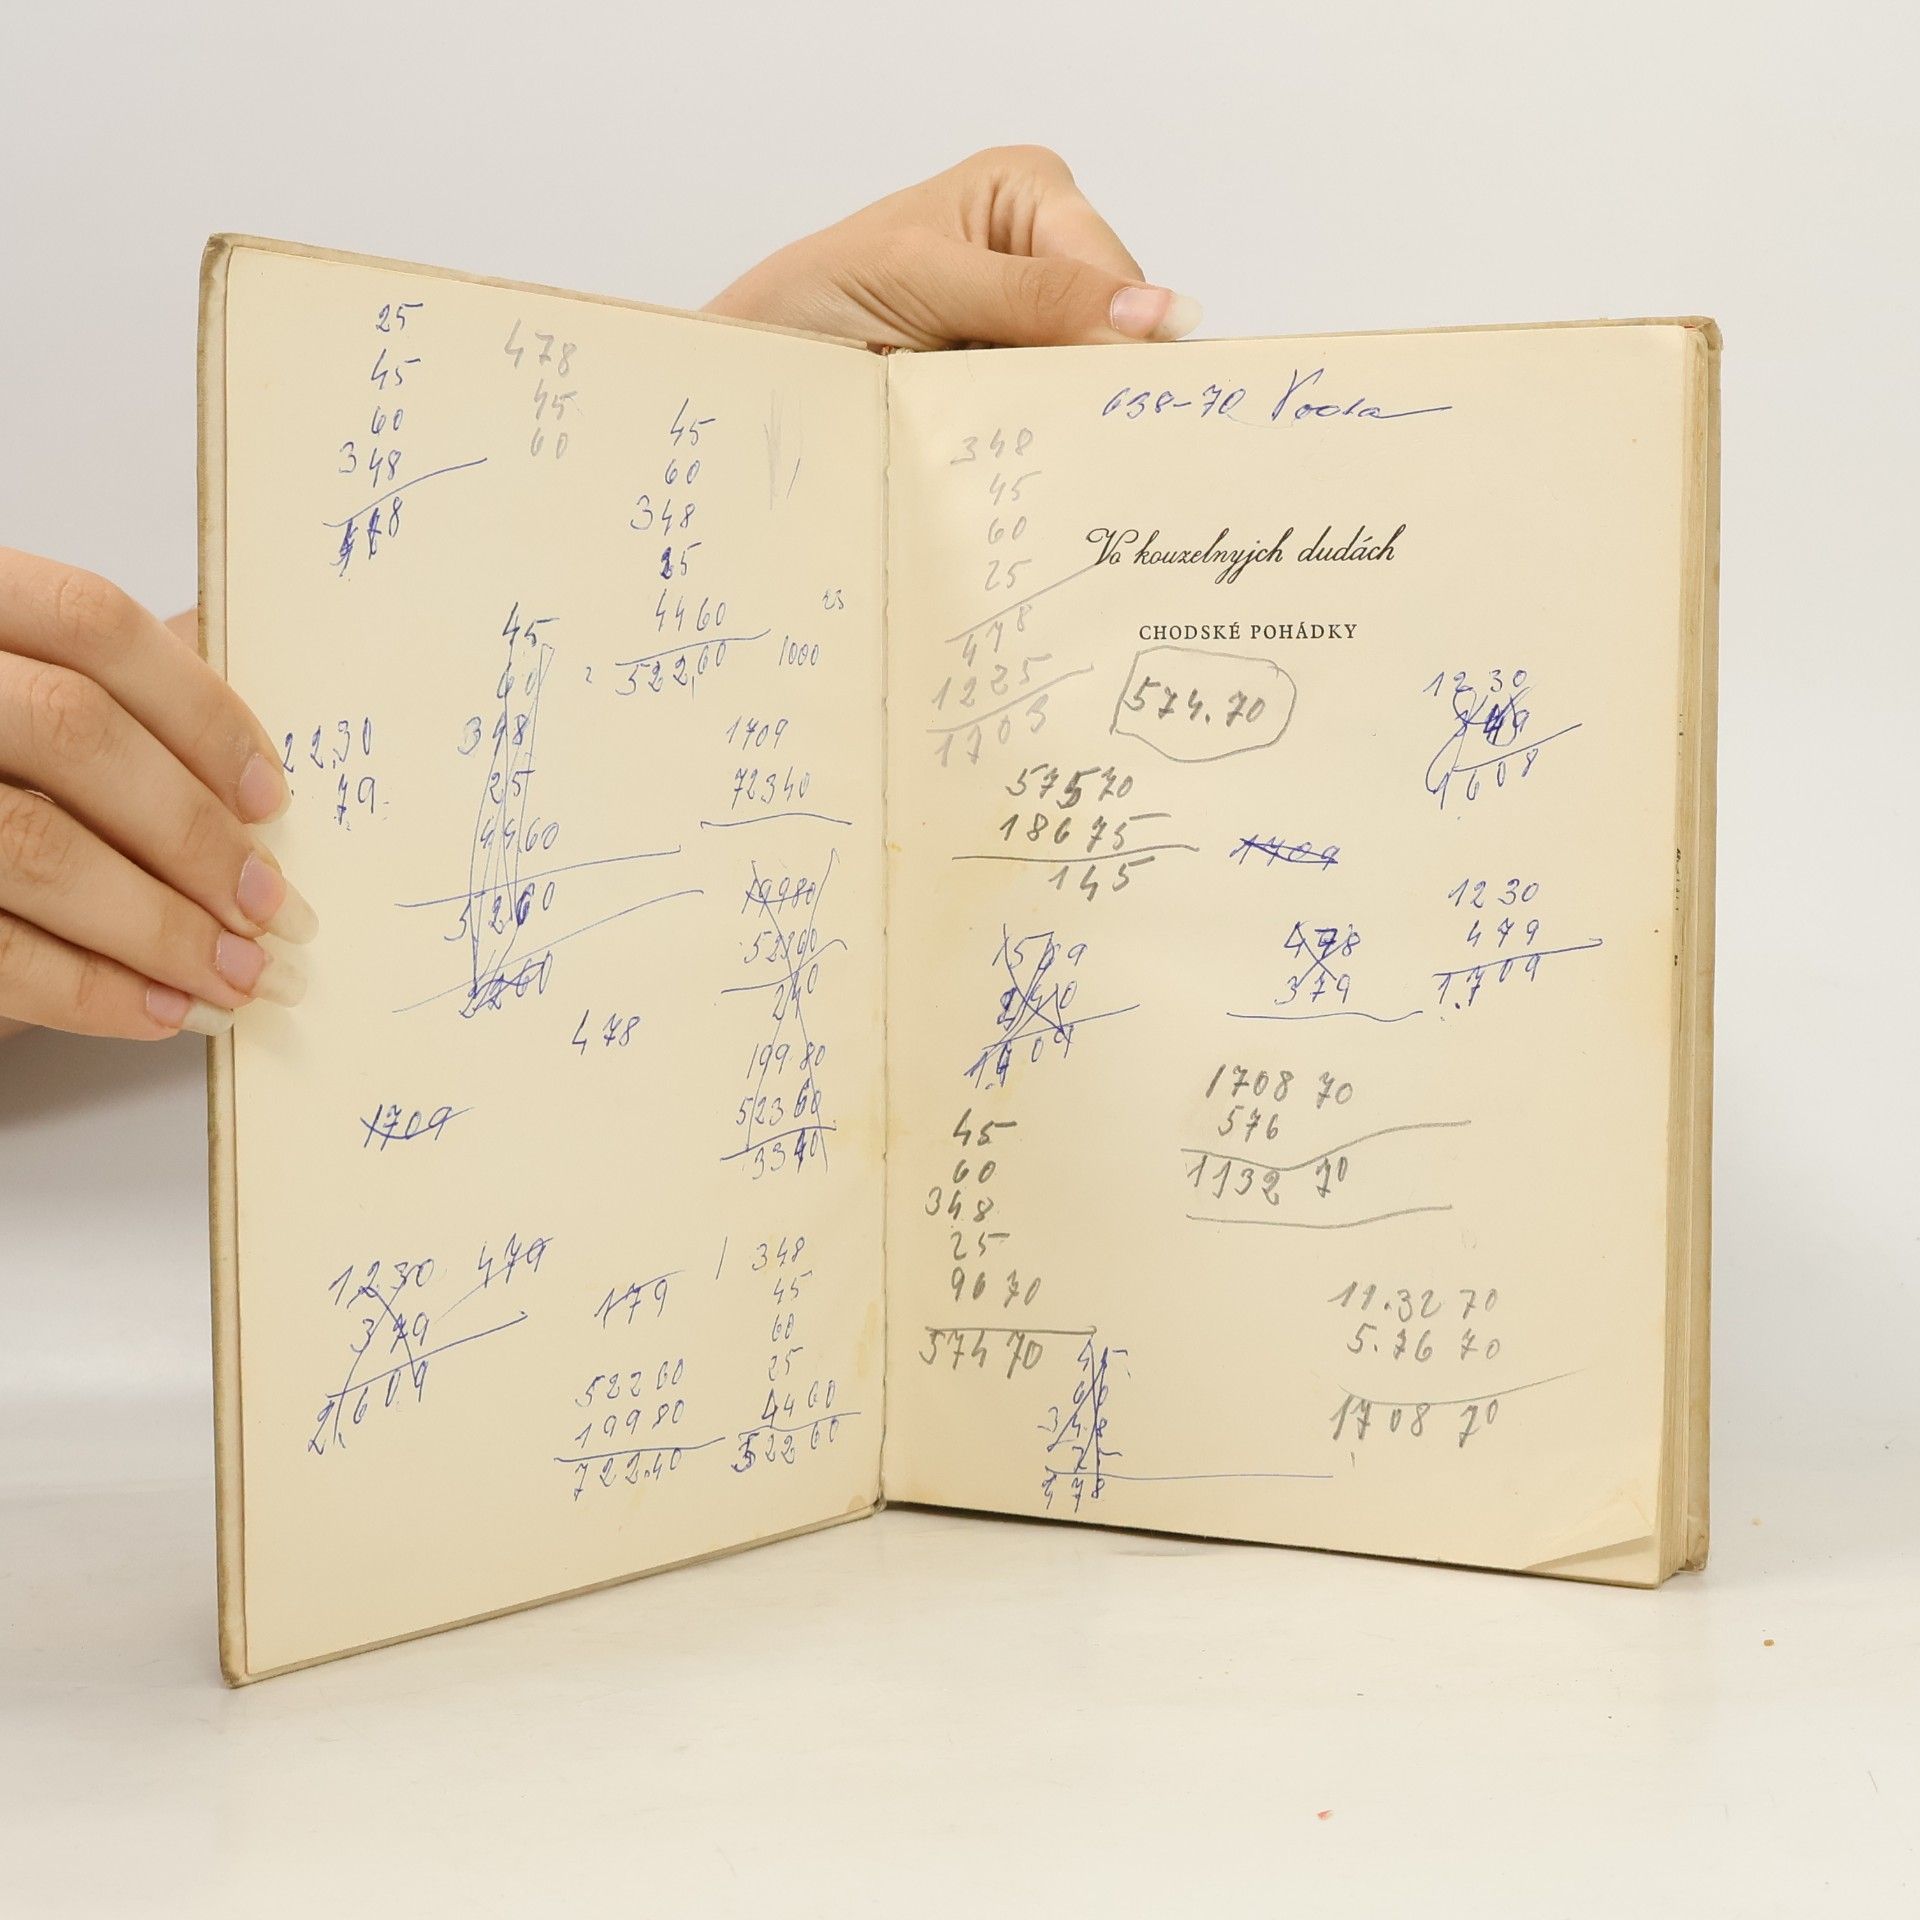 25
45
60
348
478
478
45
60
45
60
348
25
4460
522,60
23
1000
45
60
348
25
4460
2,30
79
1709
72340
19980
240
478
19980
52360
1709
1230
379
479
179
52260
19980
722.40
348
45
60
25
4460
52260
638-70 Voda
348
45
60
25
478
1225
1703
Vo kouzelnyjch dudách
CHODSKÉ POHÁDKY
574.70
57570
18675
145
1230
1608
1709
1230
479
1.709
478
379
1708 70
576
1132 70
45
60
348
25
96 70
574 70
45
60
348
25
478
11.32 70
5.76 70
1708 70